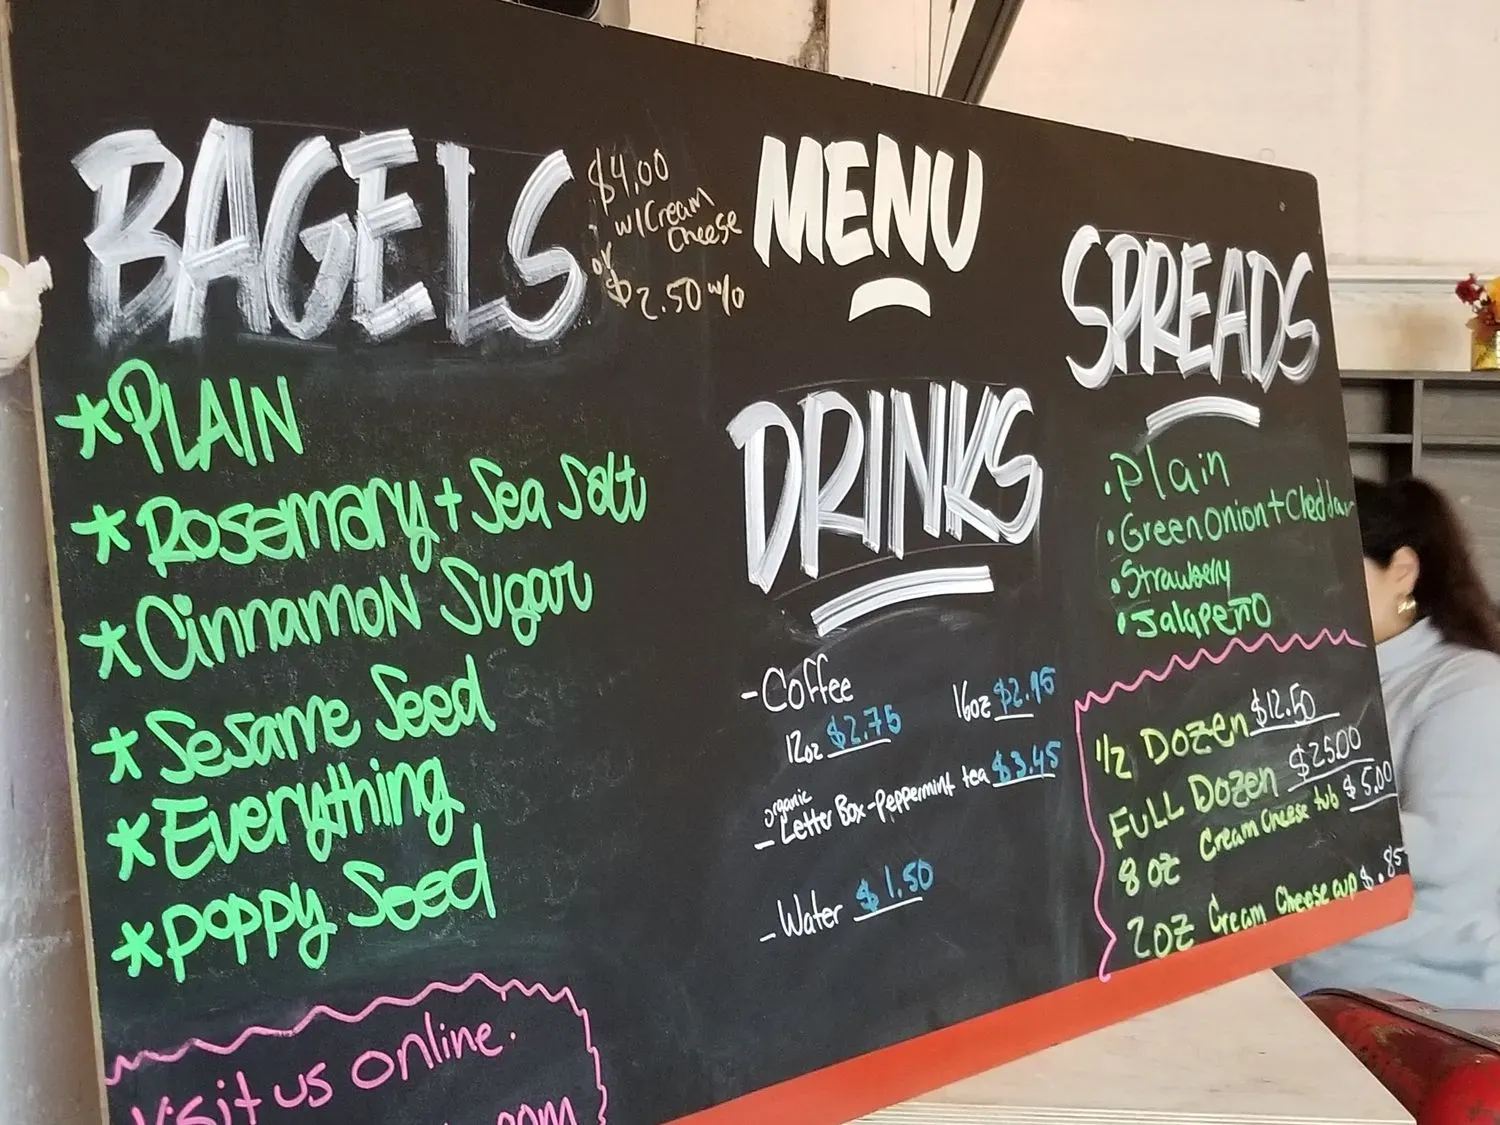 BAGELS
$4.00
w/Cream
Cheese
or
$2.50 w/o
* PLAIN
* Rosemary + Sea Salt
* Cinnamon Sugar
* Sesame Seed
* Everything
* Poppy Seed
Visit us online.
.com
MENU
DRINKS
- Coffee
12oz $2.75 16oz $2.95
organic
- Letter Box - Peppermint tea $3.45
- Water $1.50
SPREADS
. Plain
. Green Onion + Cheddar
. Strawberry
. Jalapeño
1/2 Dozen $12.50
FULL Dozen $25.00
8 oz Cream Cheese tub $5.00
2oz Cream Cheese cup $.85